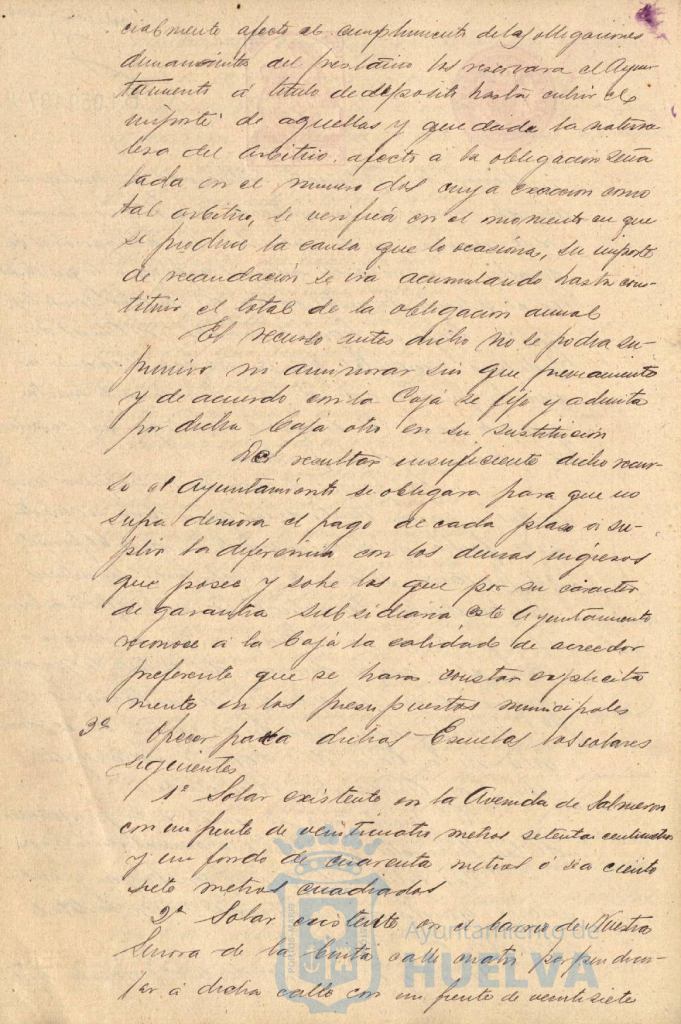 cialmente afecto al cumplimiento de las obligaciones
dimanantes del préstamo los reservara el Ayun-
tamiento a titulo de depósito hasta cubrir el
importe de aquellas y que dada la natura-
leza del arbitrio afecto a la obligacion seña
lada en el numero dos cuya exaccion como
tal arbitrio, se verifica en el momento en que
se produce la causa que lo ocasiona, su importe
de recaudación se irá acumulando hasta cons-
tituir el total de la obligacion anual
El recurso antes dicho no se podrá su-
primir ni aminorar sin que previamente
y de acuerdo con la Caja se fije y admita
por dicha Caja otro en su sustitución
De resultar insuficiente dicho recur-
so el Ayuntamiento se obligara para que no
sufra demora el pago de cada plazo a su-
plir la diferencia con los demas ingresos
que posee y sobre los que por su caracter
de garantia subsidiaria este Ayuntamiento
reconoce a la Caja la calidad de acreedor
preferente que se hara constar explicita
mente en los presupuestos municipales
3º Ofrecer para dichas Escuelas los solares
siguientes
1º Solar existente en la Avenida de Salmeron
con un frente de veinticuatro metros setenta centimetros
y un fondo de cuarenta metros ó sea ciento
siete metros cuadrados
2º Solar existente en el barrio de Nuestra
Señora de la Cinta calle cuatro perpendicu-
lar á dicha calle con un frente de veintisiete
Ayuntamiento de
HUELVA